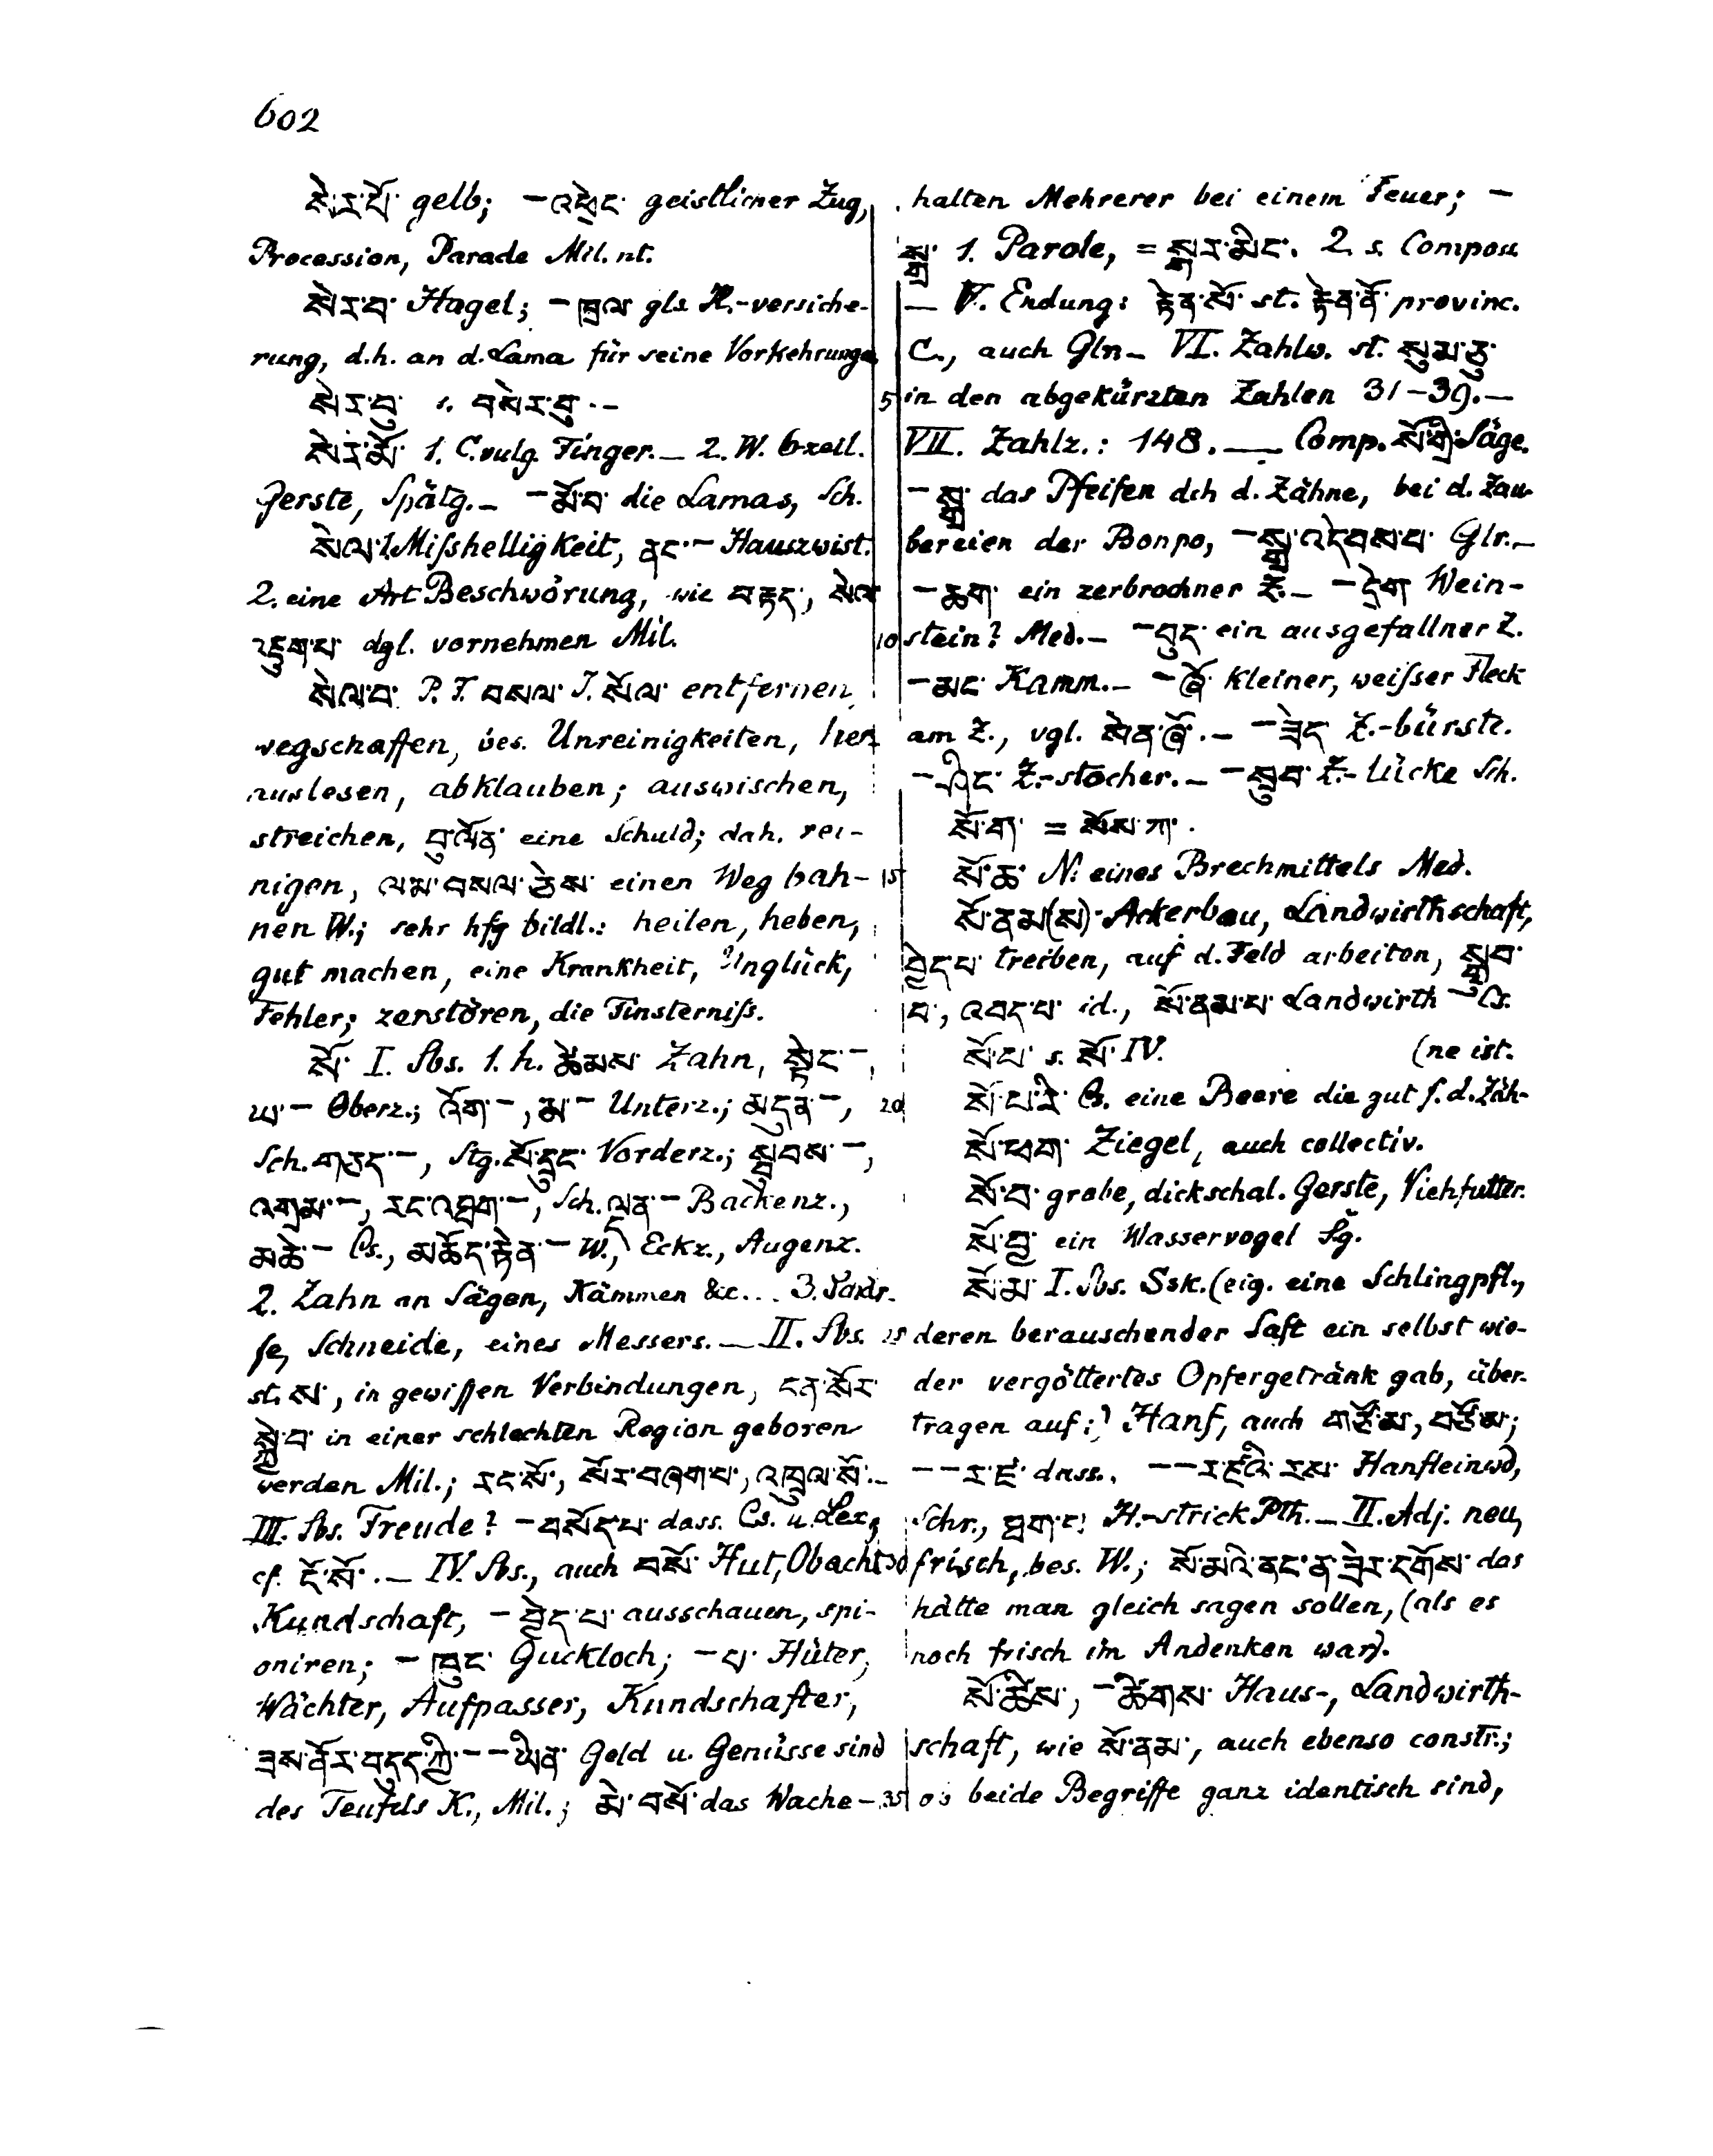 602
སེར་པོ་ gelb; – འཕྲེང་ geistlicher Zug,
Procession, Parade Mil. nt.
སེར་བ་ Hagel; – ཁྲལ་ gls. H.-versiche-
rung, d.h. an d. Lama für seine Vorkehrungen
སེར་བུ་ s. བསེར་བུ་. –
སེར་མོ་ 1. C. vulg. Finger. – 2. W.
Gerste, Spätg. – – མོ་བ་ die Lamas, Sch.
སེལ་ 1. Mißhelligkeit, ནང་ – Hauszwist.
2. eine Art Beschwörung, wie བརྟད་, སེལ་
འཇུག་པ་ dgl. vornehmen Mil.
སེལ་བ་ P. F. བསལ་ I. སོལ་ entfernen,
wegschaffen, bes. Unreinigkeiten,
auslesen, abklauben; auswischen,
streichen, བུ་ལོན་ eine Schuld; dah. rei-
nigen, ལམ་བསལ་ཅེས་ einen Weg bah-
nen W.; sehr hfg bildl.: heilen, heben,
gut machen, eine Krankheit, Unglück,
Fehler; zerstören, die Finsterniß.
སོ་ I. Sbs. 1. h. ཚེམས་ Zahn, སྟེང་ –,
ཡ་ – Oberz.; འོག་ –, མ་ – Unterz.; མདུན་ –,
Sch. གཅད་ –, Stg. སོ་དྲུང་ Vorderz.; སྦུབས་ –,
འགྲམ་ –, རང་འཐག་ –, Sch. ལྔན་ – Backenz.,
མཆེ་ – Cs., མཆོད་རྟེན་ – W., Eckz., Augenz.
2. Zahn an Sägen, Kämmen &c... 3.
Schneide, eines Messers. – II. Sbs.
st. ས་, in gewissen Verbindungen, ངན་སོར་
སྐྱེ་བ་ in einer schlechten Region geboren
werden Mil.; རང་སོ་, སོར་བཞག་པ་, འཁྲུལ་སོ་. –
III. Sbs. Freude? – བསོད་པ་ dass. Cs. u. Lex.,
cf. ངོ་སོ་. – IV. Sbs., auch བསོ་ Hut, Obacht
Kundschaft, – བྱེད་པ་ ausschauen, spi-
oniren; – ཁུང་ Guckloch; – པ་ Hüter,
Wächter, Aufpasser, Kundschafter,
ཟས་ནོར་བདུད་ཀྱི་ – – ཡིན་ Geld u. Genüsse sind
des Teufels K., Mil.; མེ་བསོ་ das Wache-
halten Mehrerer bei einem Feuer; –
སྒྲ་ 1. Parole, = སྒྲར་མིང་. 2. s. Compos.
– V. Endung: རྟེན་སོ་ st. རྟེན་ནོ་ provinc.
C., auch Gln – VI. Zahlw. st. སུམ་ཅུ་
5 in den abgekürzten Zahlen 31 – 39. –
VII. Zahlz.: 148. – Comp. སོ་གྲི་ Säge.
– སྒྲ་ das Pfeifen dch d. Zähne, bei d. Zau-
bereien der Bonpo, – སྒྲ་འདེབས་པ་ Glr. –
– ཆག་ ein zerbrochner Z. – – དྲེག་ Wein-
10 stein? Med. – – བུད་ ein ausgefallner Z.
– མང་ Kamm. – – ཞོ་ kleiner, weißer Fleck
am Z., vgl. སེན་ཞོ་. – – ཟེད་ Z.-bürste.
– ཤིང་ Z.-stocher. – – སྲུབ་ Z.-lücke Sch.
སོ་ག་ = སོས་ཀ་.
15 སོ་ཆ་ N. eines Brechmittels Med.
སོ་ནམ(ས)་ Ackerbau, Landwirthschaft,
བྱེད་པ་ treiben, auf d. Feld arbeiten, སྒྲུབ་
པ་, འབད་པ་ id., སོ་ནམ་པ་ Landwirth Cs.
སོ་པ་ s. སོ་ IV. (ne ist.
20 སོ་པ་རི་ Cs. eine Beere die gut f. d. Zäh-
སོ་ཕག་ Ziegel, auch collectiv.
སོ་བ་ grobe, dickschal. Gerste, Viehfutter.
སོ་བྱ་ ein Wasservogel Sg.
སོ་མ་ I. Sbs. Ssk. (eig. eine Schlingpfl.,
25 deren berauschender Saft ein selbst wie-
der vergöttertes Opfergetränk gab, über-
tragen auf:) Hanf, auch གཙོ་མ་, བཙོ་མ་;
– – ར་ཛ་ dass., – – ར་ཛའི་རས་ Hanfleinwd,
Schr., ཐག་པ་ H.-strick Pth. – II. Adj. neu,
30 frisch, bes. W.; སོ་མའི་ནང་ན་ཟེར་དགོས་ das
hätte man gleich sagen sollen, (als es
noch frisch im Andenken war).
སོ་ཚིས་, – ཚིགས་ Haus-, Landwirth-
schaft, wie སོ་ནམ་, auch ebenso constr.;
35 ob beide Begriffe ganz identisch sind,